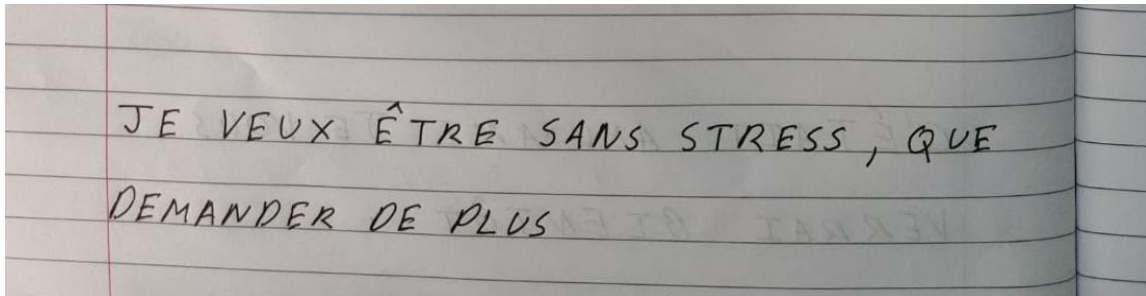 JE VEUX ÊTRE SANS STRESS, QUE
DEMANDER DE PLUS